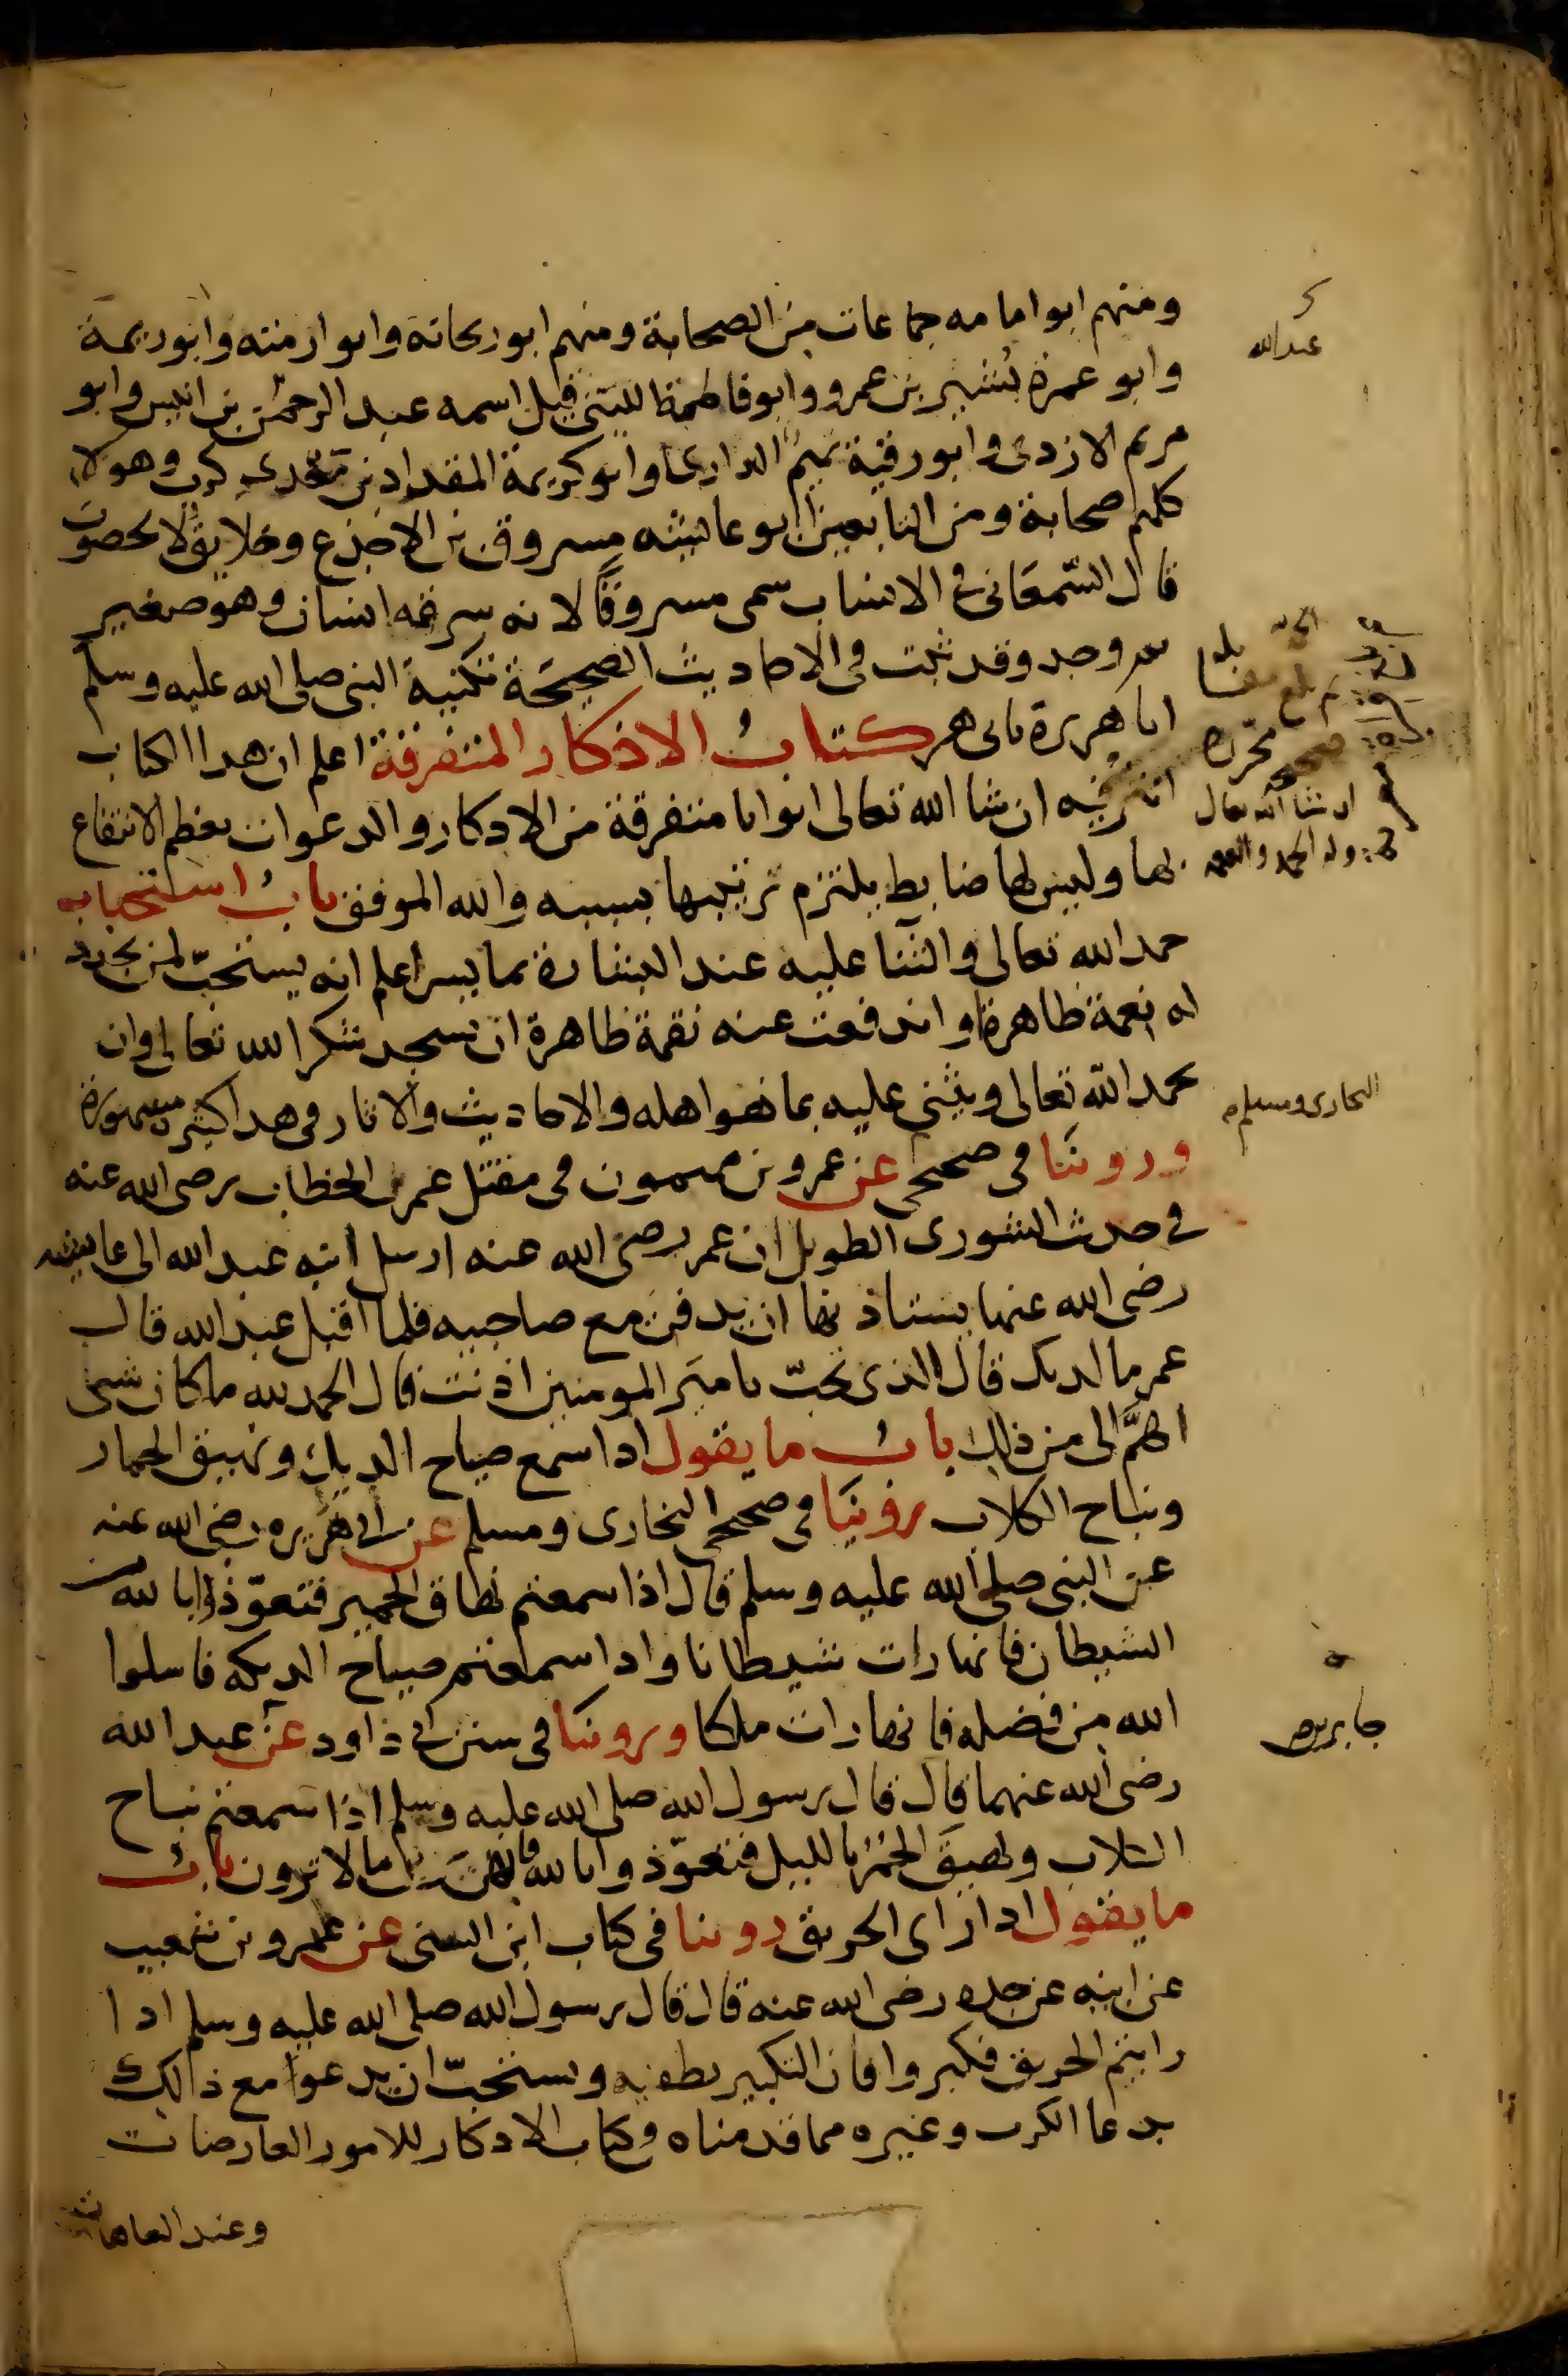 ومنهم ابو امامه جماعات من الصحابة ومنهم ابو ريحانة وابو ارمثه وابو ريمة
وابو عمرة بشير بن عمرو وابو فاطمة الليثي قيل اسمه عبد الرحمن بن انيس وابو
عبدالله
مريم الازدى وابو رقية تميم الدارى وابو كريمة المقداد بن معدى كرب وهولا
كلهم صحابة ومن التابعين ابو عائشه مسروق بن الاجدع وخلايق لا يحصون
قال السمعانى فى الانساب سمى مسروقا لانه سرقه انسان وهو صغير
ثم وجد وقد ثبت فى الاحاديث الصحيحة تكنية النبى صلى الله عليه وسلم
ابا هريرة بابى هر كتاب الاذكار المتفرقة اعلم ان هدا الكتاب
انثر فيه ان شا الله تعالى ابوابا متفرقة من الادكار والدعوات يعظم الانتفاع
بها وليس لها ضابط يلتزم ترتيبها بسببه والله الموفق باب استحباب
حمد الله تعالى والثنا عليه عند البشارة بما يسر اعلم انه يستحب لمن تجدد
له نعمة ظاهرة او اندفعت عنه نقمة ظاهرة ان يسجد شكرا لله تعالى وان
يحمد الله تعالى ويثنى عليه بما هو اهله والاحاديث والاثار فى هدا كثيره مشهورة
البخارى ومسلم
وروينا فى صحيح عن عمرو بن ميمون فى مقتل عمر بن الخطاب رضى الله عنه
فى حديث الشورى الطويل ان عمر رضى الله عنه ارسل ابنه عبد الله الى عائشه
رضى الله عنها يستاذنها ان يدفن مع صاحبيه فلما اقبل عبد الله قال
عمر ما لديك قال الذى تحب يا امير المومنين اذنت قال الحمد لله ما كان شى
اهم الى من ذلك باب ما يقول ادا سمع صياح الديك ونهيق الحمار
ونباح الكلاب روينا فى صحيحى البخارى ومسلم عن ابى هريره رضى الله عنه
عن النبى صلى الله عليه وسلم قال اذا سمعتم نهاق الحمير فتعوذوا بالله من
الشيطان فانها رات شيطانا وادا سمعتم صياح الديكه فاسلوا
الله من فضله فانها رات ملكا وروينا فى سنن ابى داود عن عبد الله
جابر بن
رضى الله عنهما قال قال رسول الله صلى الله عليه وسلم اذا سمعتم نباح
الكلاب ونهيق الحمر بالليل فتعوذوا بالله فانهن يرين ما لا ترون باب
ما يقول ادا راى الحريق روينا فى كتاب ابن السنى عن عمرو بن شعيب
عن ابيه عن جده رضى الله عنه قال قال رسول الله صلى الله عليه وسلم ادا
رايتم الحريق فكبروا فان التكبير يطفيه ويستحب ان يدعوا مع ذالك
بدعا الكرب وغيره مما قدمناه فى كتاب الادكار للامور العارضات
وعند العاهات